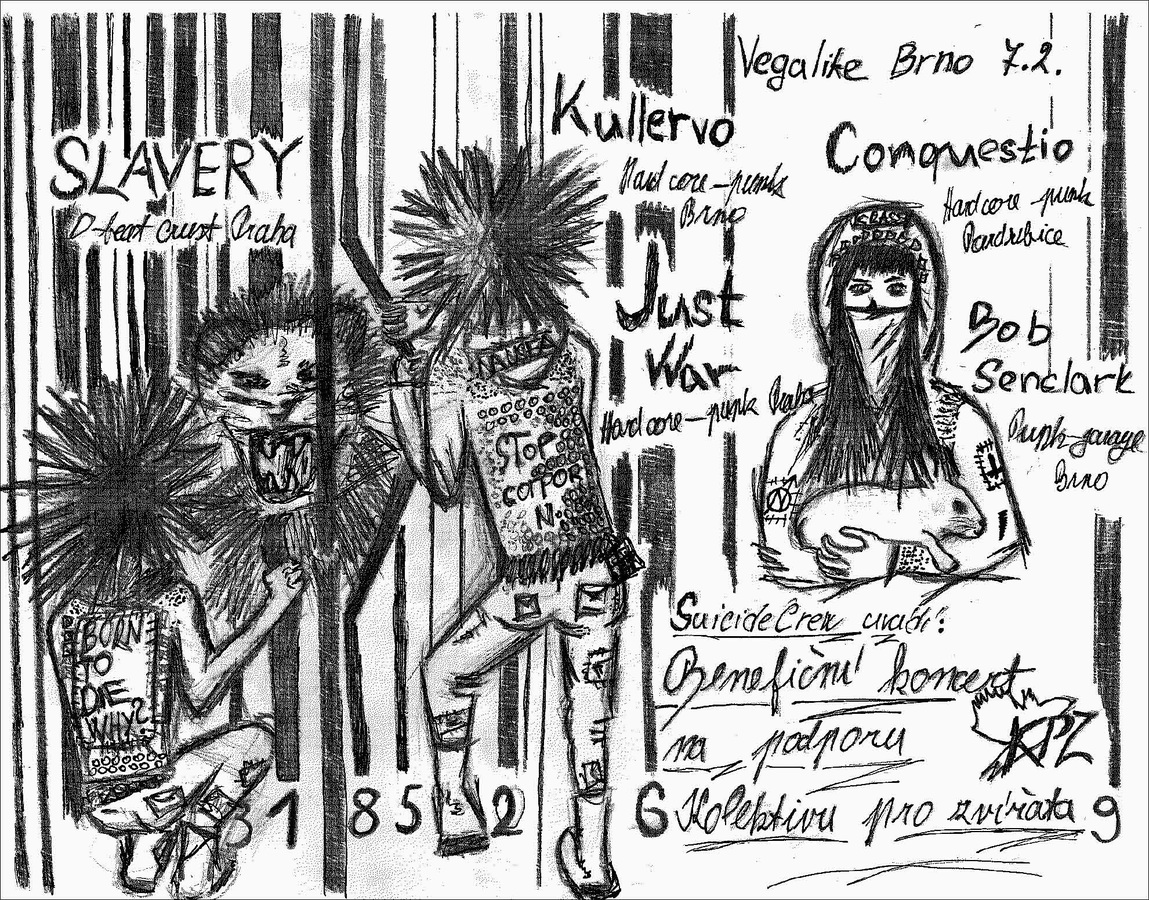 Vegalite Brno 7.2.
SLAVERY
D-beat crust Praha
Kullervo
Hard core-punk
Brno
Just
War
Hardcore-punk Praha
Conquestio
Hardcore-punk
Pardubice
Bob
Senclark
Punk-garage
Brno
STOP
N.
BORN
TO
DIE
WHY?
SuicideCrew uvádí:
Benefiční koncert
na podporu
Kolektivu pro zvířata
KPZ
31 85 2 6 9